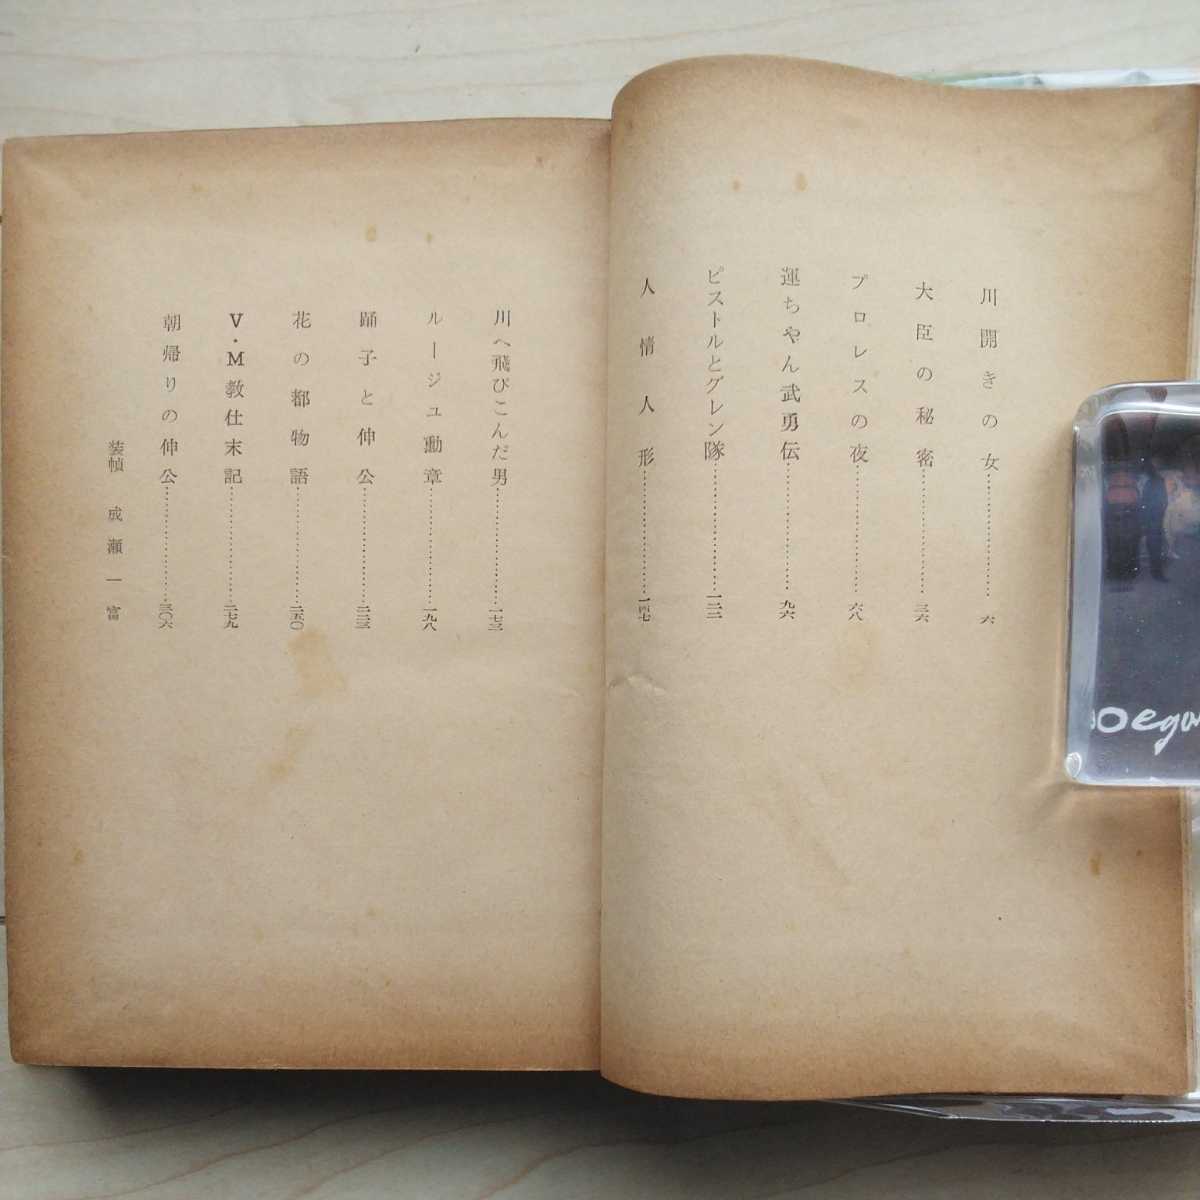 川開きの女…………………六
大臣の秘密…………………三六
プロレスの夜…………………六八
運ちゃん武勇伝…………………九六
ピストルとグレン隊…………………一二二
人情人形…………………一四七
川へ飛びこんだ男…………………一七三
ルージュ勳章…………………一九八
踊子と仲公…………………二二三
花の都物語…………………二五〇
V・M教仕末記…………………二七九
朝帰りの仲公…………………三〇六
装幀 成瀬一富